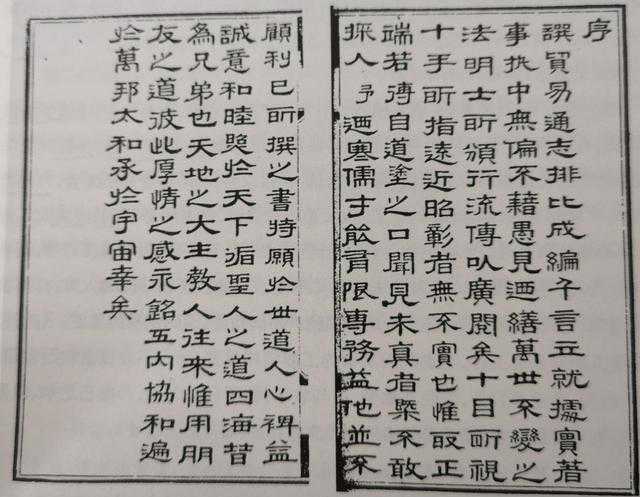 序
譔貿易通志排比成編千言立就據實著
事執中無偏不藉愚見迺繕萬世不變之
法明士所頒行流傳以廣閱矣十目所視
十手所指遠近昭彰者無不實也惟取正
端若得自道塗之口聞見未真者槩不敢
採入予迺寒儒才能有限專務益他並不
顧利己所撰之書特願於世道人心裨益
誠意和睦興於天下循聖人之道四海皆
為兄弟也天地之大主教人往來惟用朋
友之道彼此厚情之感永銘五內協和遍
於萬邦太和承於宇宙幸矣